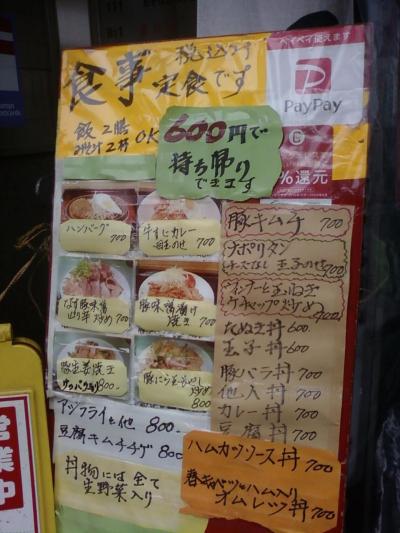 税込み
食事 定食です
飯2膳
みそ汁2杯 OK
600円で
持ち帰り
できます
ペイペイ使えます
PayPay
%還元
ハンバーグ
700
牛すじカレー
700
豚味噌漬け
焼き 700
豚生姜焼き
800
豚にら
炒め
800
アジフライと他 800
豆腐キムチチゲ 800
丼物には全て
生野菜入り
豚キムチ 700
ナポリタン
玉子のせ 700
ケチャップ炒め
たぬき丼 600
玉子丼 600
豚バラ丼 700
他人丼 700
カレー丼 700
豆腐丼 700
ハムカツソース丼 700
春キャベツとハム入り
オムレツ丼 700
営業中